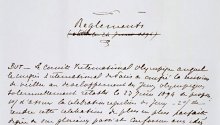 Règlements
Art — Le Comité International Olympique auquel
le Congrès International de Paris a confié la mission
de veiller au développement des Jeux Olympiques
solennellement rétablis le 23 Juin 1894 se propose
1° d'assurer la célébration régulière des Jeux - 2° de
rendre cette célébration de plus en plus parfaite,
digne de son glorieux passé et conforme aux